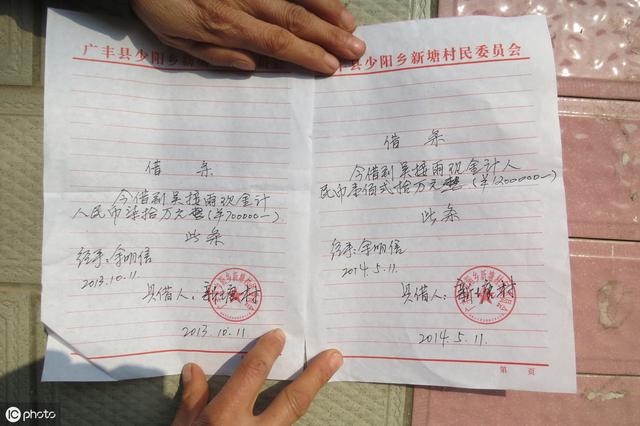 广丰县少阳乡新塘
借 条
今借到吴接雨现金计
人民币柒拾万元整(¥700000—)
此条
经手:余明信
2013.10.11
具借人:新塘村
2013.10.11
丰县少阳乡新塘村民委员会
借 条
今借到吴接雨现金计人
民币壹佰弍拾万元整(¥1200000—)
此条
经手:余明信
2014.5.11.
具借人:新塘村
2014.5.11.
第 页
iC photo